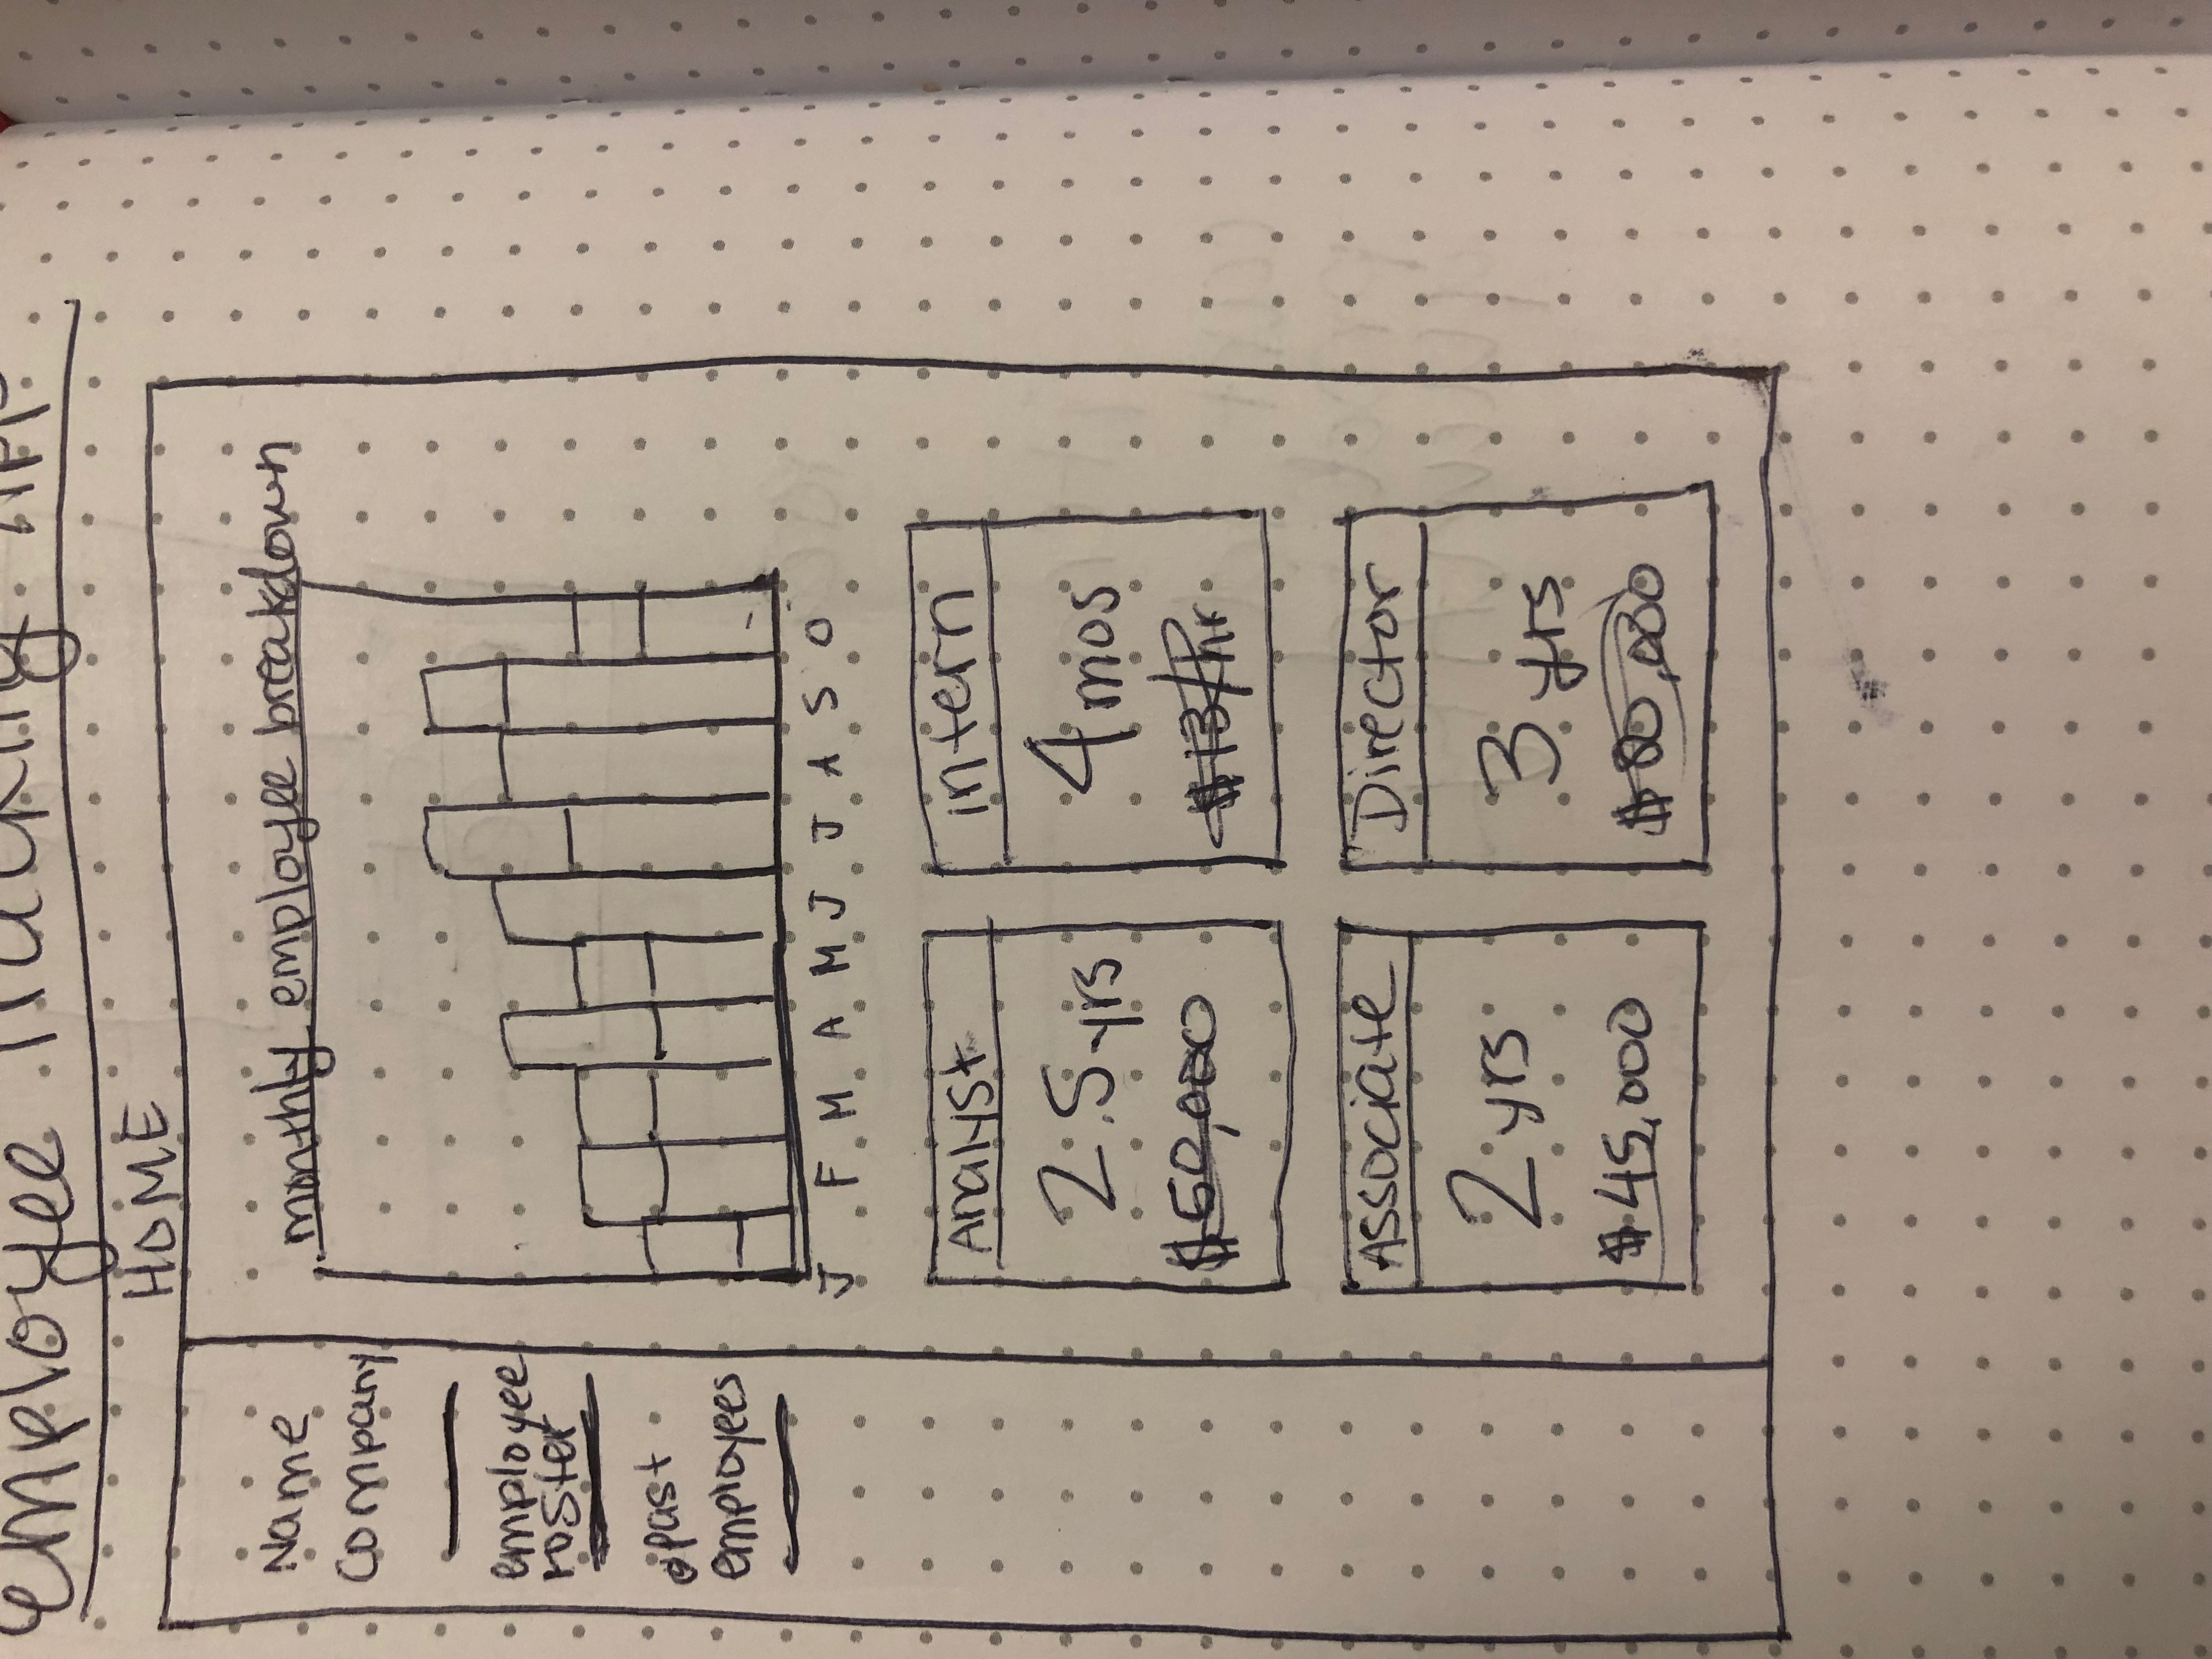 Employee Tracking App
HOME
Name
Company
employee
roster
past
employees
monthly employee breakdown
J F M A M J J A S O
Analyst
2.5 yrs
intern
4 mos
$13/hr
Associate
2 yrs
$45,000
Director
3 yrs